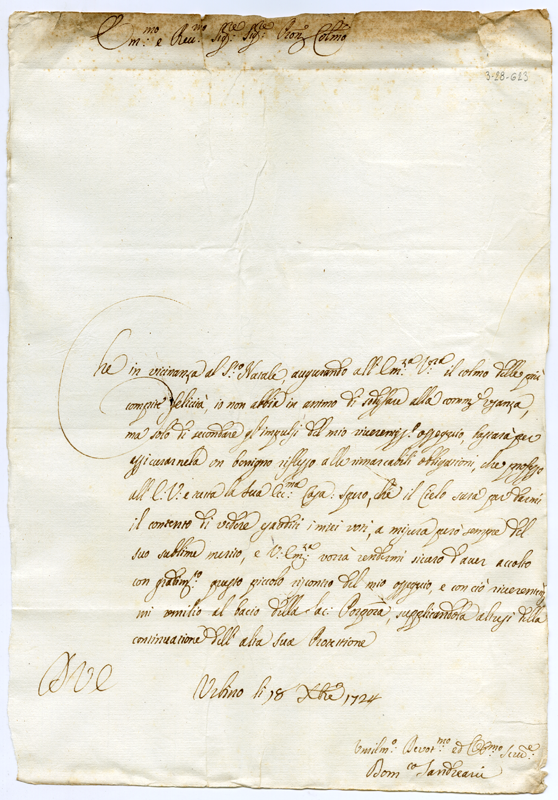 Em:mo e Reu:mo Sig:re Sig:re Pron: Colmo
3-28-623
Che in vicinanza al S:o Natale, augurando all' Em:za V:ra il colmo delle più
compite felicità, io non abbia in animo di adesare alla com:e usanza,
ma solo di secondare gl'impulsi del mio riverentiss:o ossequio, bastarà per
assicurarnela un benigno riflesso alle rimarcabili obligazioni, che professo
all' E: V: e tutta la sua Ecc:ma Casa: Spero, che il Cielo sarà per darmi
il contento di vedere graditi i miei voti, a misura però sempre del
suo sublime merito, e V: Em:za vorrà rendermi sicuro d'aver accolto
con gradim:to questo piccolo riscontro del mio ossequio, e con ciò riverentem:
mi umilio al bacio della Sac: Porpora, supplicandola altresì della
continuazione dell' alta sua Protettione
D V E
Urbino li 18 Xbre 1724
Umilmo: Devot:mo ed Obb:mo Serv:e:
Dom:co